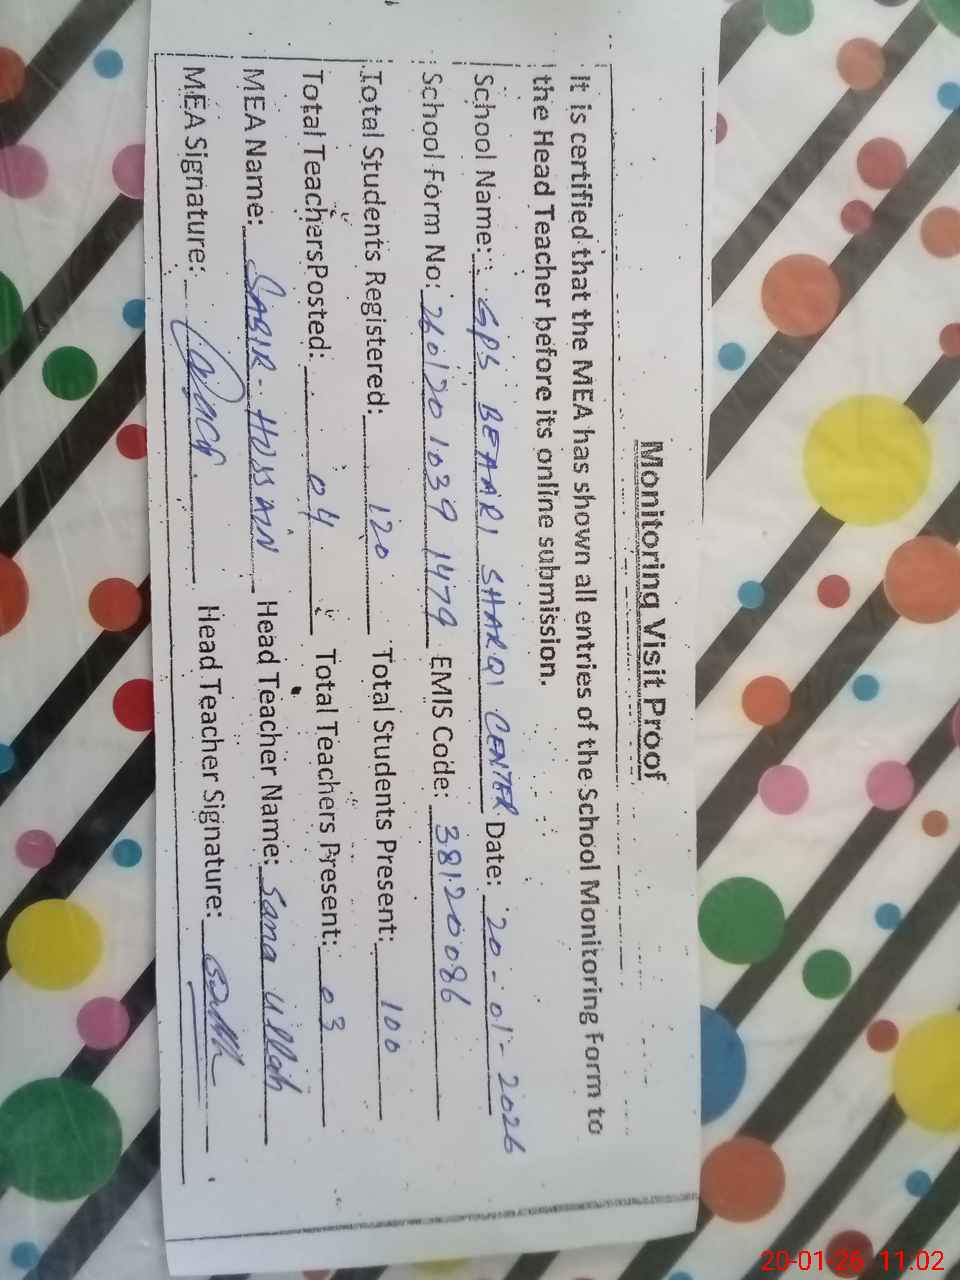 Monitoring Visit Proof
It is certified that the MEA has shown all entries of the School Monitoring Form to
the Head Teacher before its online submission.
School Name: GPS BEAARI SHARQI CENTER Date: 20-01-2026
School Form No: 260120 1039 1479 EMIS Code: 38120086
Total Students Registered: 120 Total Students Present: 100
Total Teachers Posted: 04 Total Teachers Present: 03
MEA Name: SABIR-HUSSAIN Head Teacher Name: Sana Ullah
MEA Signature: Head Teacher Signature:
20-01-26 11:02